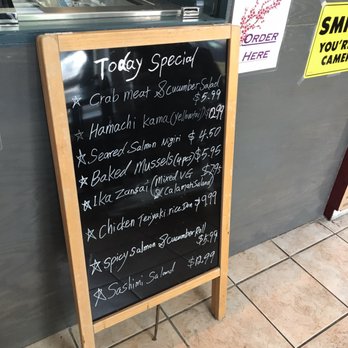 Today Special
☆ Crab meat & Cucumber Salad
$5.99
☆ Hamachi kama (yellowtail) 12.99
☆ Seared Salmon Ngiri $4.50
☆ Baked Mussels (4pcs) $5.95
☆ Ika Zansai (Mixed VG $7.95
& Calamari Salad)
☆ Chicken Teriyaki rice $9.99
☆ Spicy Salmon & Cucumber Roll
$5.99
☆ Sashimi Salad $12.99
ORDER
HERE
SMI
YOU'R
CAMER